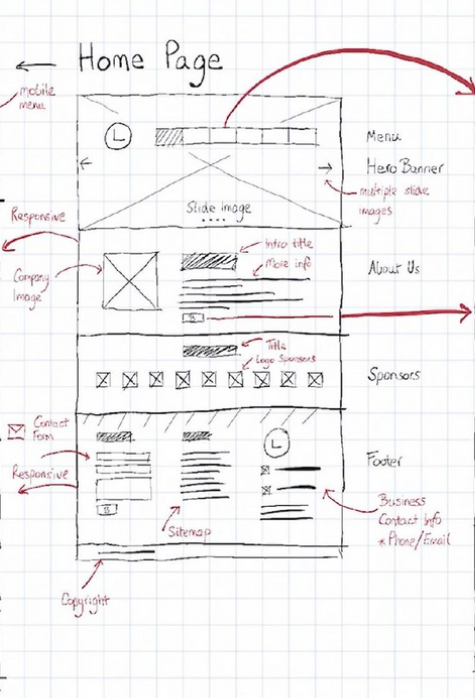 Home Page
mobile
menu
L
Menu
Hero Banner
multiple slide
images
Slide Image
Responsive
Intro title
More info
Company
Image
About Us
Title
Logo Sponsors
Sponsors
Contact
Form
L
Footer
Responsive
Sitemap
Business
Contact Info
*Phone/Email
Copyright